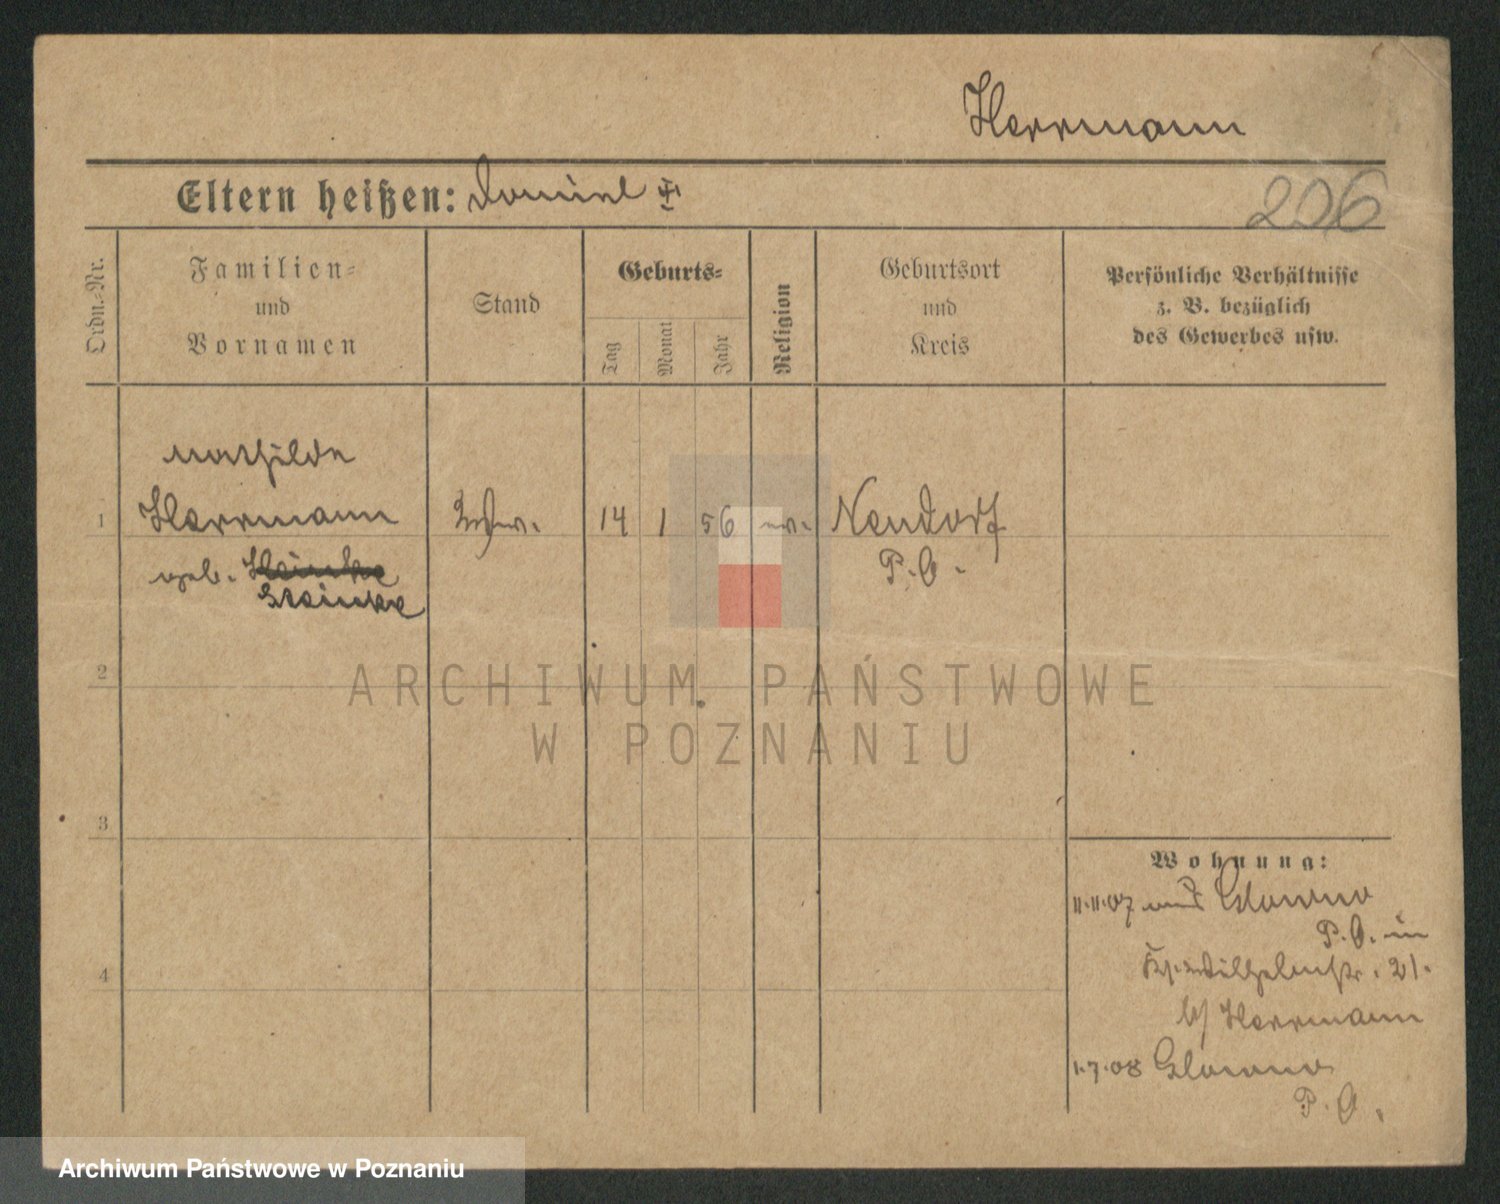 Herrmann
Eltern heißen: Daniel
206
Ordn.-Nr.
Familien-
und
Vornamen
Stand
Geburts-
Tag
Monat
Jahr
Religion
Geburtsort
und
Kreis
Persönliche Verhältnisse
z. B. bezüglich
des Gewerbes usw.
Mathilde
1 Herrmann Wwe. 14 1 56 ev. Neudorf
P.O.
geb. Heinke
Steinke
2
ARCHIWUM PAŃSTWOWE
W POZNANIU
3
4
Wohnung:
11.11.07 aus Glowno
P.O. in
Ks. Wilhelmstr. 21.
b/ Herrmann
1.7.08 Glowno
P.O.
Archiwum Państwowe w Poznaniu